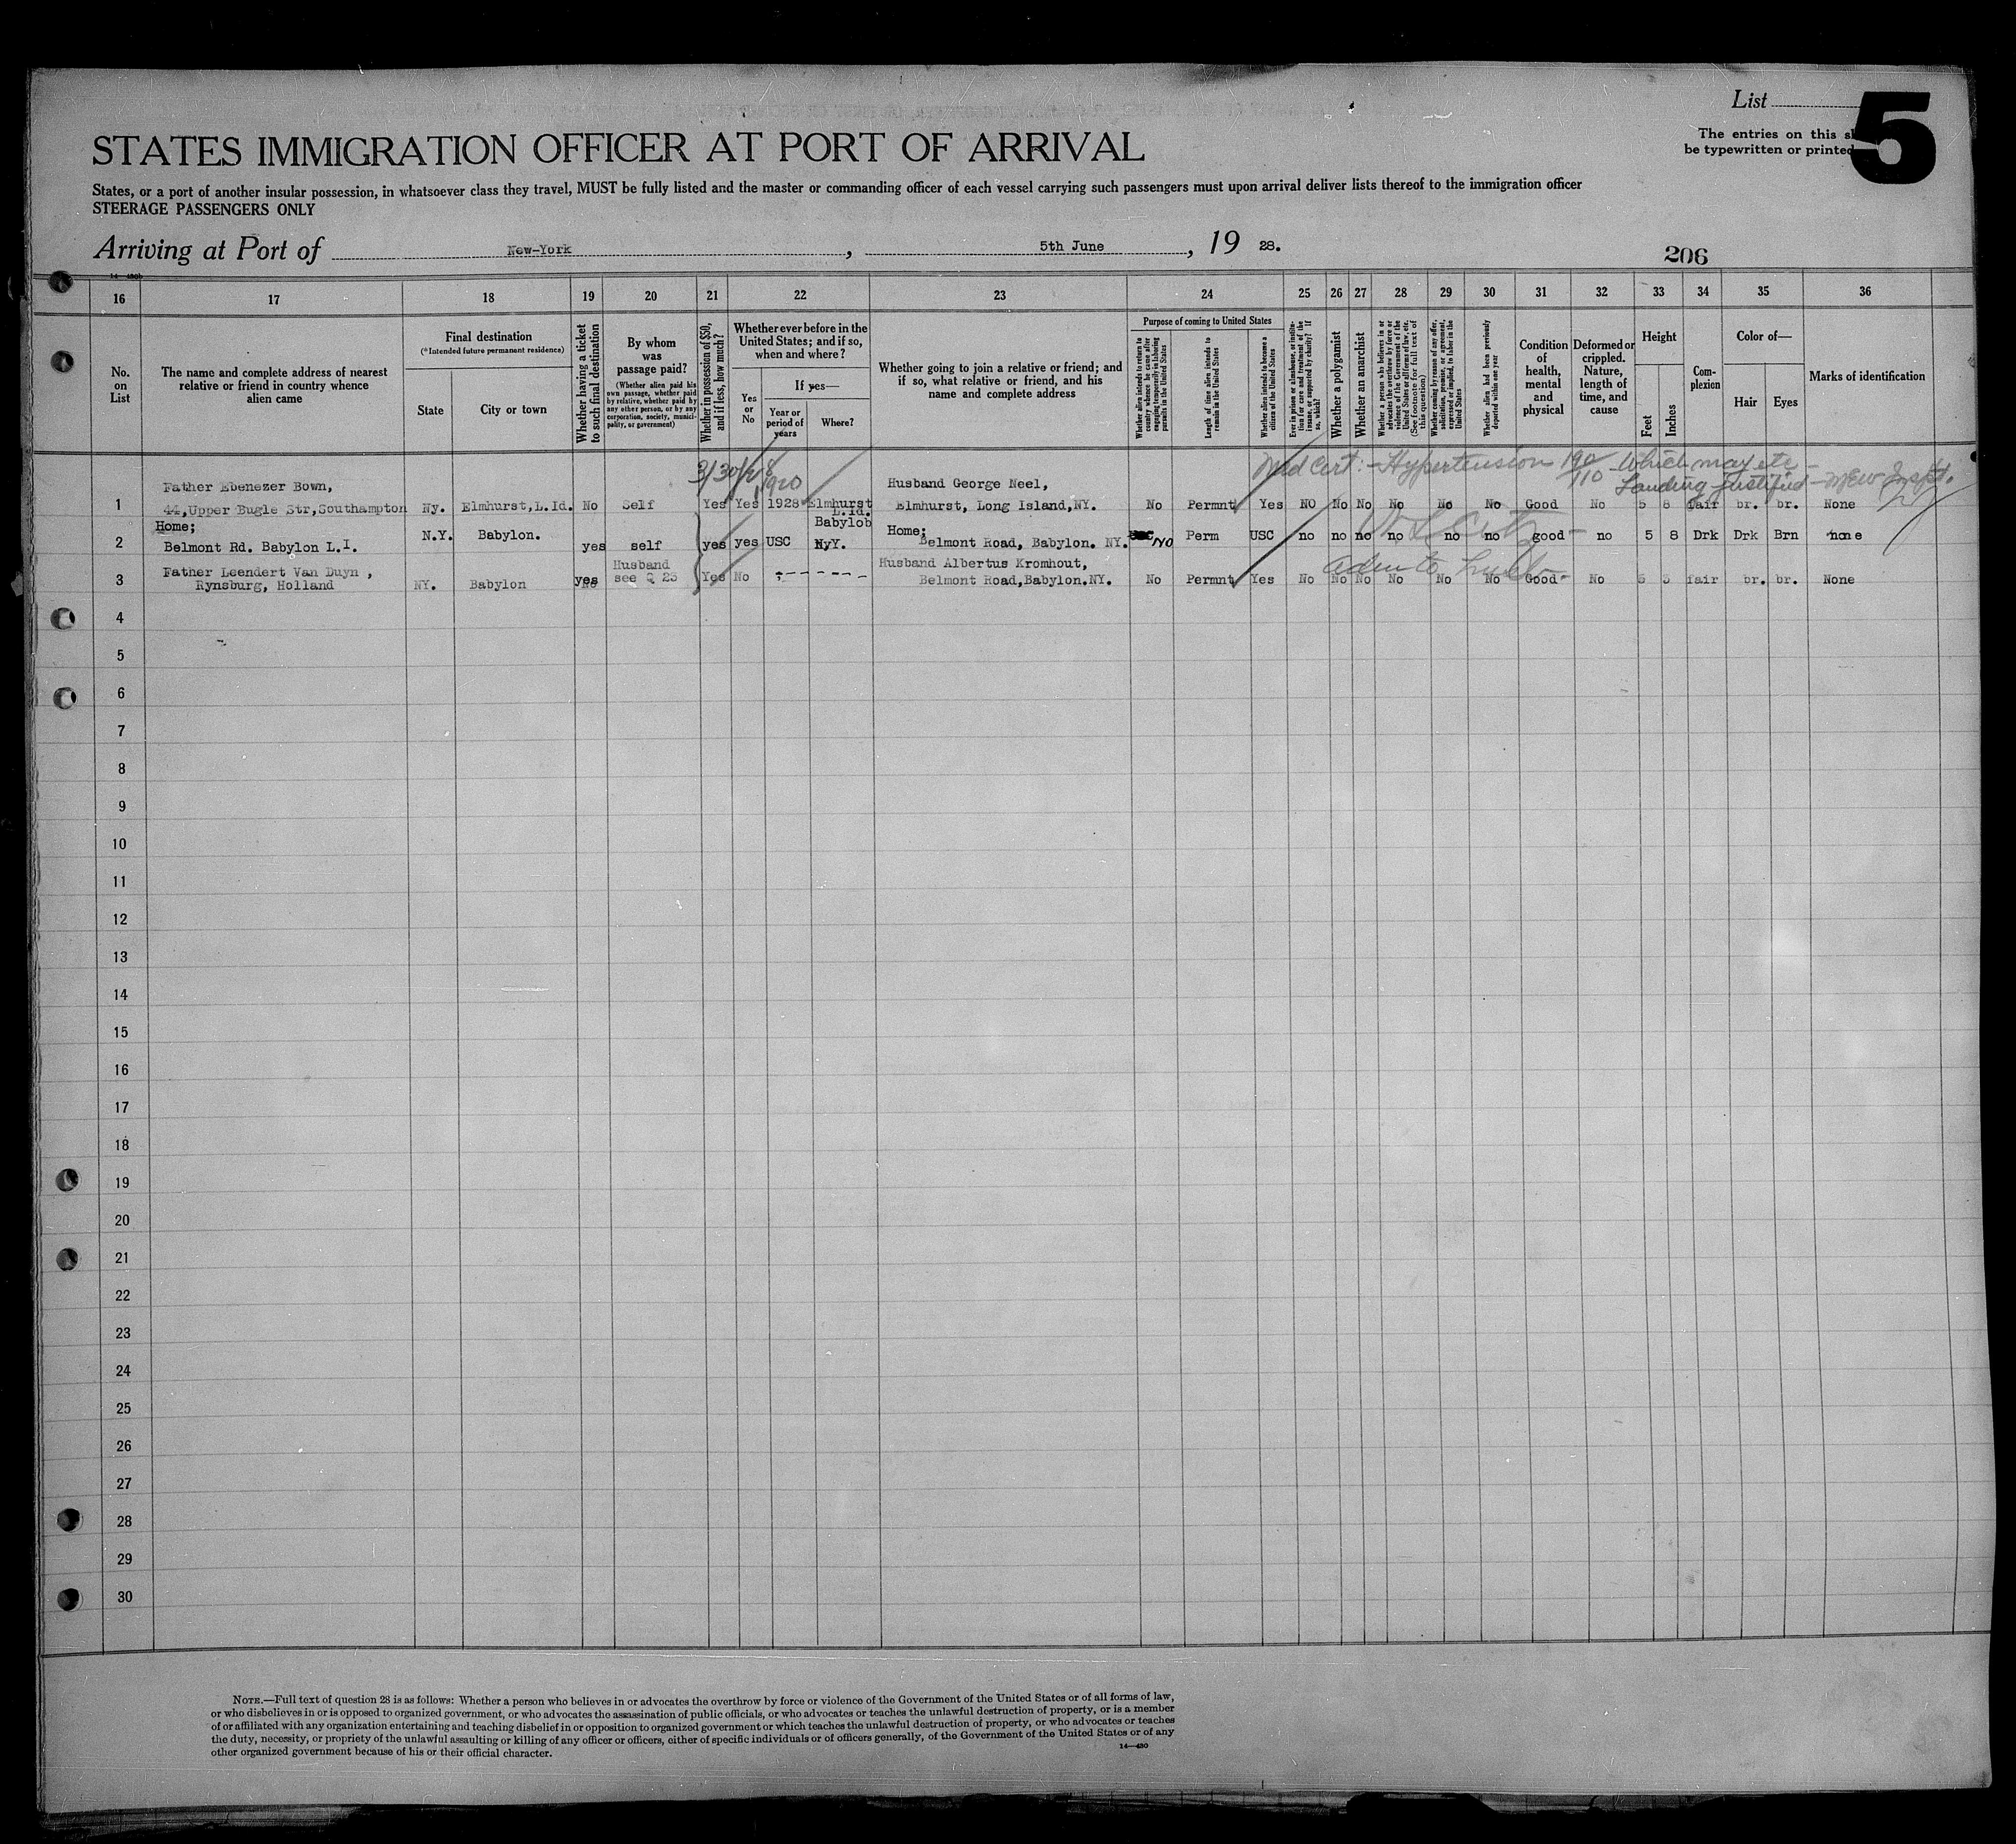 List
5
The entries on this s
be typewritten or printed
STATES IMMIGRATION OFFICER AT PORT OF ARRIVAL
States, or a port of another insular possession, in whatsoever class they travel, MUST be fully listed and the master or commanding officer of each vessel carrying such passengers must upon arrival deliver lists thereof to the immigration officer
STEERAGE PASSENGERS ONLY
Arriving at Port of New-York, 5th June, 19 28.
206
16 17 18 19 20 21 22 23 24 25 26 27 28 29 30 31 32 33 34 35 36
No. on List
The name and complete address of nearest relative or friend in country whence alien came
Final destination
(*Intended future permanent residence)
State
City or town
Whether having a ticket to such final destination
By whom was passage paid?
(Whether alien paid his own passage, whether paid by relative, whether paid by any other person, or by any corporation, society, municipality, or government)
Whether in possession of $50, and if less, how much?
Whether ever before in the United States; and if so, when and where?
Yes or No
If yes—
Year or period of years
Where?
Whether going to join a relative or friend; and if so, what relative or friend, and his name and complete address
Purpose of coming to United States
Whether alien intends to return to country whence he came after engaging temporarily in laboring pursuits in the United States
Length of time alien intends to remain in the United States
Whether alien intends to become a citizen of the United States
Ever in prison or almshouse, or institution for care and treatment of the insane, or supported by charity? If so, which?
Whether a polygamist
Whether an anarchist
Whether a person who believes in or advocates the overthrow by force or violence of the Government of the United States or all forms of law, etc. (See footnote for full text of this question)
Whether coming by reason of any offer, solicitation, promise, or agreement, expressed or implied, to labor in the United States
Whether alien had been previously deported within one year
Condition of health, mental and physical
Deformed or crippled. Nature, length of time, and cause
Height
Feet
Inches
Complexion
Color of—
Hair
Eyes
Marks of identification
3/30/28
1920
Med Cert:- Hypertension 190/110 - Which may etc -
Landing Justified - Inspt.
1 Father Ebenezer Bown,
44,Upper Bugle Str,Southampton Ny. Elmhurst,L.Id. No Self Yes Yes 1928 Elmhurst L.Id. Husband George Neel,
Elmhurst, Long Island,NY. No Permnt Yes NO No No No No No Good No 5 8 fair br. br. None
2 Home;
Belmont Rd. Babylon L.I. N.Y. Babylon. yes self yes yes USC Babylob NyY. Home;
Belmont Road, Babylon. NY. NO Perm USC no no no no no no good no 5 8 Drk Drk Brn none
3 Father Leendert Van Duyn ,
Rynsburg, Holland NY. Babylon yes Husband see Q 23 Yes No ------ Husband Albertus Kromhout,
Belmont Road,Babylon.NY. No Permnt Yes No No No No No No Good No 5 fair br. br. None
4
5
6
7
8
9
10
11
12
13
14
15
16
17
18
19
20
21
22
23
24
25
26
27
28
29
30
NOTE.—Full text of question 28 is as follows: Whether a person who believes in or advocates the overthrow by force or violence of the Government of the United States or of all forms of law,
or who disbelieves in or is opposed to organized government, or who advocates the assassination of public officials, or who advocates or teaches the unlawful destruction of property, or is a member
of or affiliated with any organization entertaining and teaching disbelief in or opposition to organized government or which teaches the unlawful destruction of property, or who advocates or teaches
the duty, necessity, or propriety of the unlawful assaulting or killing of any officer or officers, either of specific individuals or of officers generally, of the Government of the United States or of any
other organized government because of his or their official character.
14—430